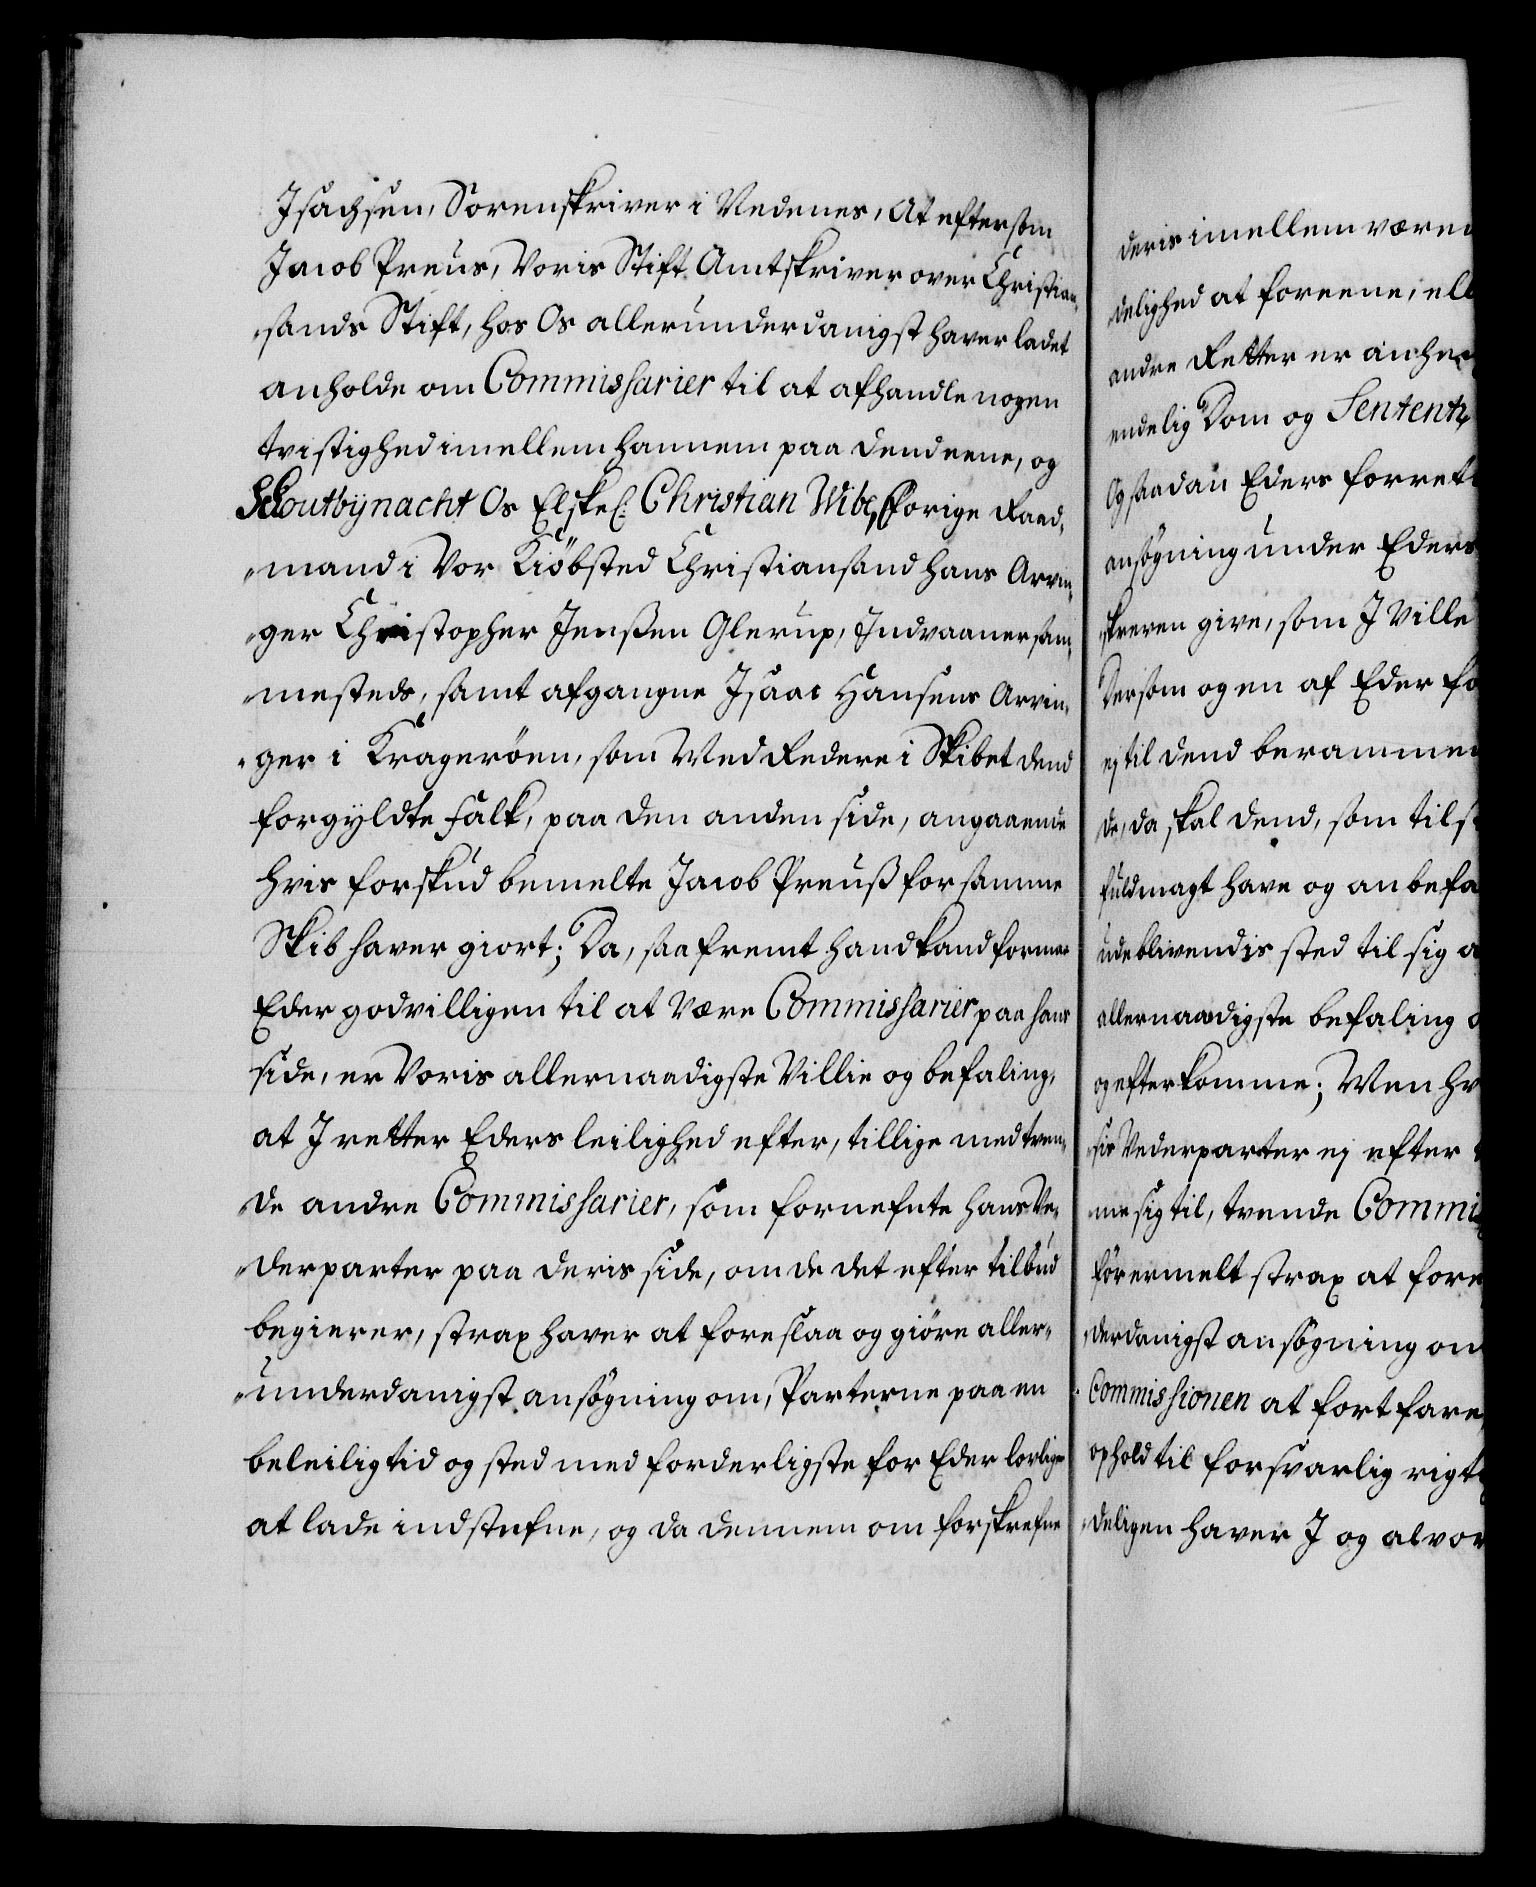 Isachsen, Sorenskriver i Nedenes, At eftersom
Jacob Preus, Voris Stift Amtskriver over Christian„
„sands Stift, hos Os allerunderdanigst haver ladet
anholde om Commissarier til at afhandle nogen
tvistighed imellem hannem paa dend eene, og
Schoutbynacht Os Elskel: Christian Wibe, forige Raad„
„mand i Vor Kiöbsted Christiansand hans Arvin„
„ger Christopher Jenssen Glerup, Indvaaner sam„
„mesteds, samt afgangne Isaac Hansens Arvin„
„ger i Krageröen, som Med Redere i Skibet dend
forgyldte Falk, paa den anden side, angaaende
hvis forskud bemelte Jacob Preuss for samme
Skib haver giort; Da, saafremt hand kand formaa
Eder godvilligen til at være Commissarier paa hans
side, er Voris allernaadigste Villie og befaling,
at I retter Eders leilighed efter, tillige med tven„
„de andre Commissarier, som fornefnte hans Ve„
„derparter paa deris side, om de det efter tilbud
begierer, strax haver at foreslaa og giöre aller„
„underdanigst ansögning om, Parterne paa en
beleilig tid og sted med forderligste for Eder lovligen
at lade indstefne, og da dennem om forskrefne
deris imellem væren
delighed at foreene, ell
andre Retter er
endelig Dom og Sententz
Og saadan Eders forret
ansögning under Eders
skreven give, som I Ville
Dersom og en af Eder fo
ej til dend berammen
de, da skal dend, som tilst
fuldmagt have og anbefa
udeblivendis sted til sig a
allernaadigste befaling o
og efterkomme; Men hv
sis Vederparter ej efter
me sig til, tvende Commis
förermelt strax at fore
„derdanigst ansögning om
Commissionen at fortfare
ophold til forsvarlig rigt
„deligen haver I og alvor